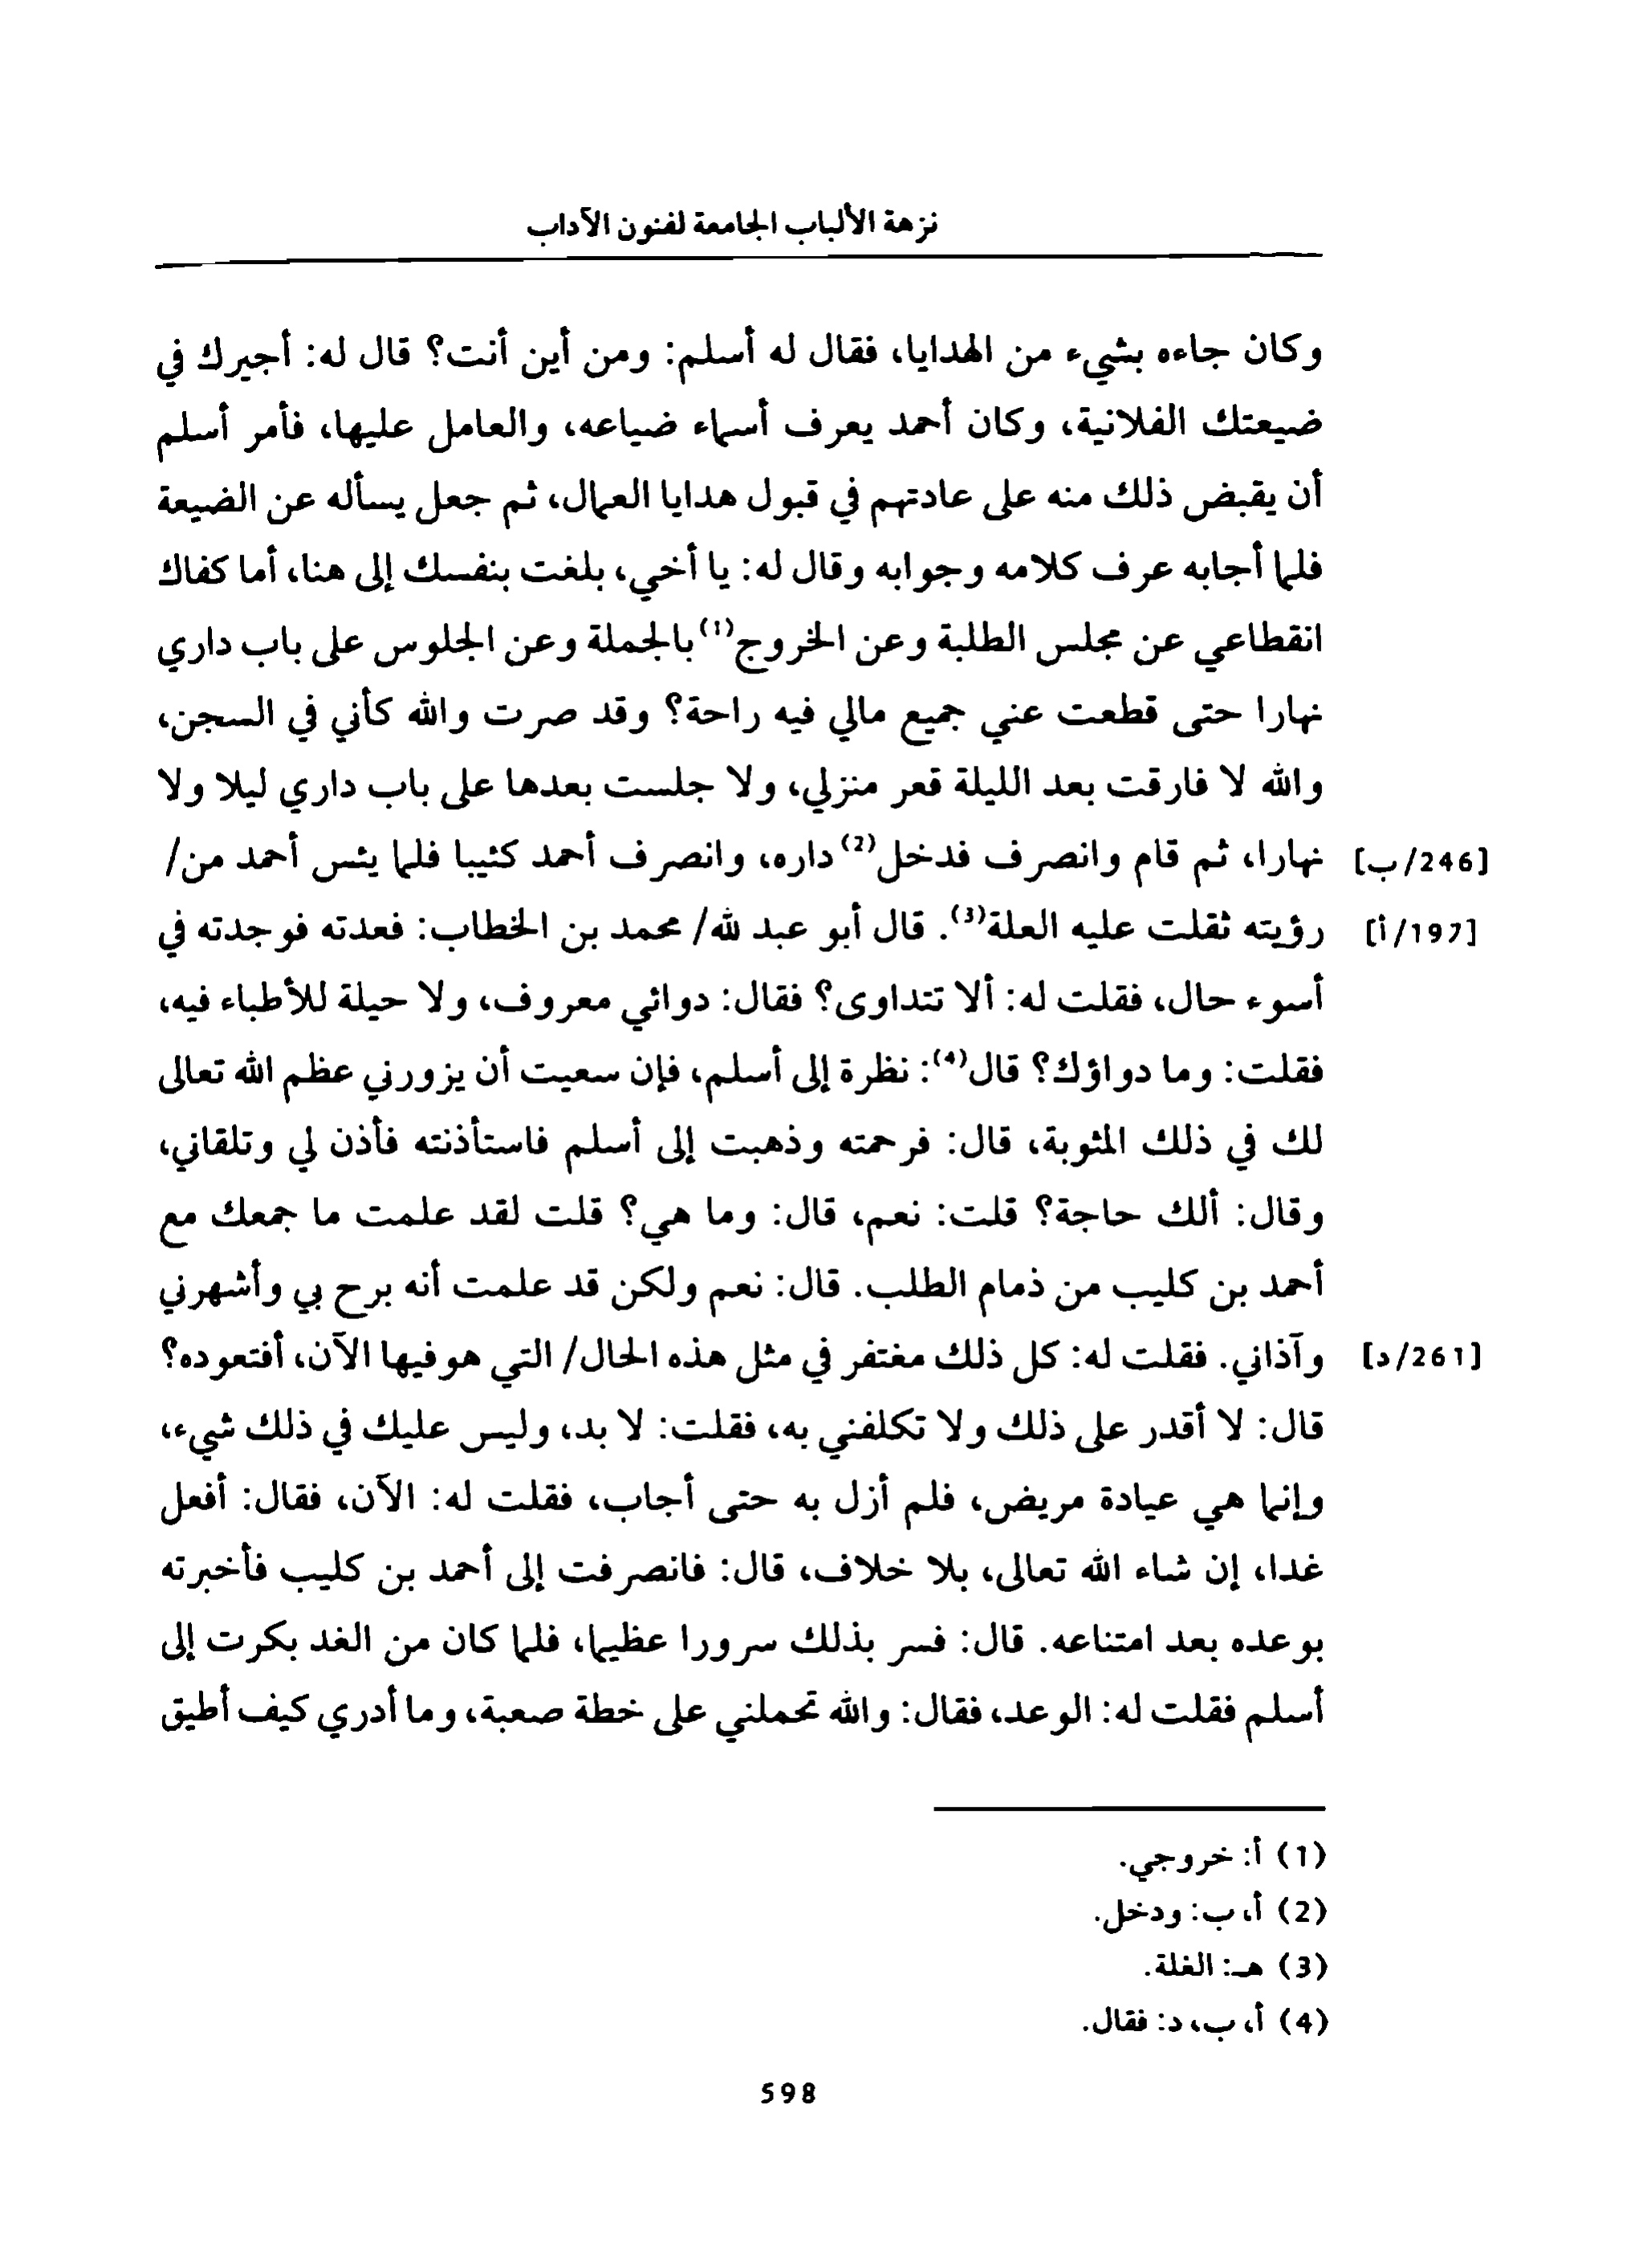 نزهة الألباب الجامعة لفنون الآداب
وكان جاءه بشيء من الهدايا، فقال له أسلم: ومن أين أنت؟ قال له: أجيرك في
ضيعتك الفلانية، وكان أحمد يعرف أسماء ضياعه، والعامل عليها، فأمر أسلم
أن يقبض ذلك منه على عادتهم في قبول هدايا العمال، ثم جعل يسأله عن الضيعة
فلما أجابه عرف كلامه وجوابه وقال له: يا أخي، بلغت بنفسك إلى هنا، أما كفاك
انقطاعي عن مجلس الطلبة وعن الخروج(1) بالجملة وعن الجلوس على باب داري
نهارا حتى قطعت عني جميع مالي فيه راحة؟ وقد صرت والله كأني في السجن،
والله لا فارقت بعد الليلة قعر منزلي، ولا جلست بعدها على باب داري ليلا ولا
[246/ب] نهارا، ثم قام وانصرف فدخل(2) داره، وانصرف أحمد كئيبا فلما يئس أحمد من/
[197/أ] رؤيته ثقلت عليه العلة(3). قال أبو عبد لله/ محمد بن الخطاب: فعدته فوجدته في
أسوء حال، فقلت له: ألا تتداوى؟ فقال: دوائي معروف، ولا حيلة للأطباء فيه،
فقلت: وما دواؤك؟ قال(4): نظرة إلى أسلم، فإن سعيت أن يزورني عظم الله تعالى
لك في ذلك المثوبة، قال: فرحمته وذهبت إلى أسلم فاستأذنته فأذن لي وتلقاني،
وقال: ألك حاجة؟ قلت: نعم، قال: وما هي؟ قلت لقد علمت ما جمعك مع
أحمد بن كليب من ذمام الطلب. قال: نعم ولكن قد علمت أنه برح بي وأشهرني
[261/د] وآذاني. فقلت له: كل ذلك مغتفر في مثل هذه الحال/ التي هو فيها الآن، أفتعوده؟
قال: لا أقدر على ذلك ولا تكلفني به، فقلت: لا بد، وليس عليك في ذلك شيء،
وإنما هي عيادة مريض، فلم أزل به حتى أجاب، فقلت له: الآن، فقال: أفعل
غدا، إن شاء الله تعالى، بلا خلاف، قال: فانصرفت إلى أحمد بن كليب فأخبرته
بوعده بعد امتناعه. قال: فسر بذلك سرورا عظيما، فلما كان من الغد بكرت إلى
أسلم فقلت له: الوعد، فقال: والله تحملني على خطة صعبة، وما أدري كيف أطيق
(1) أ: خروجي.
(2) أ، ب: ودخل.
(3) هـ: الغلة.
(4) أ، ب، د: فقال.
598